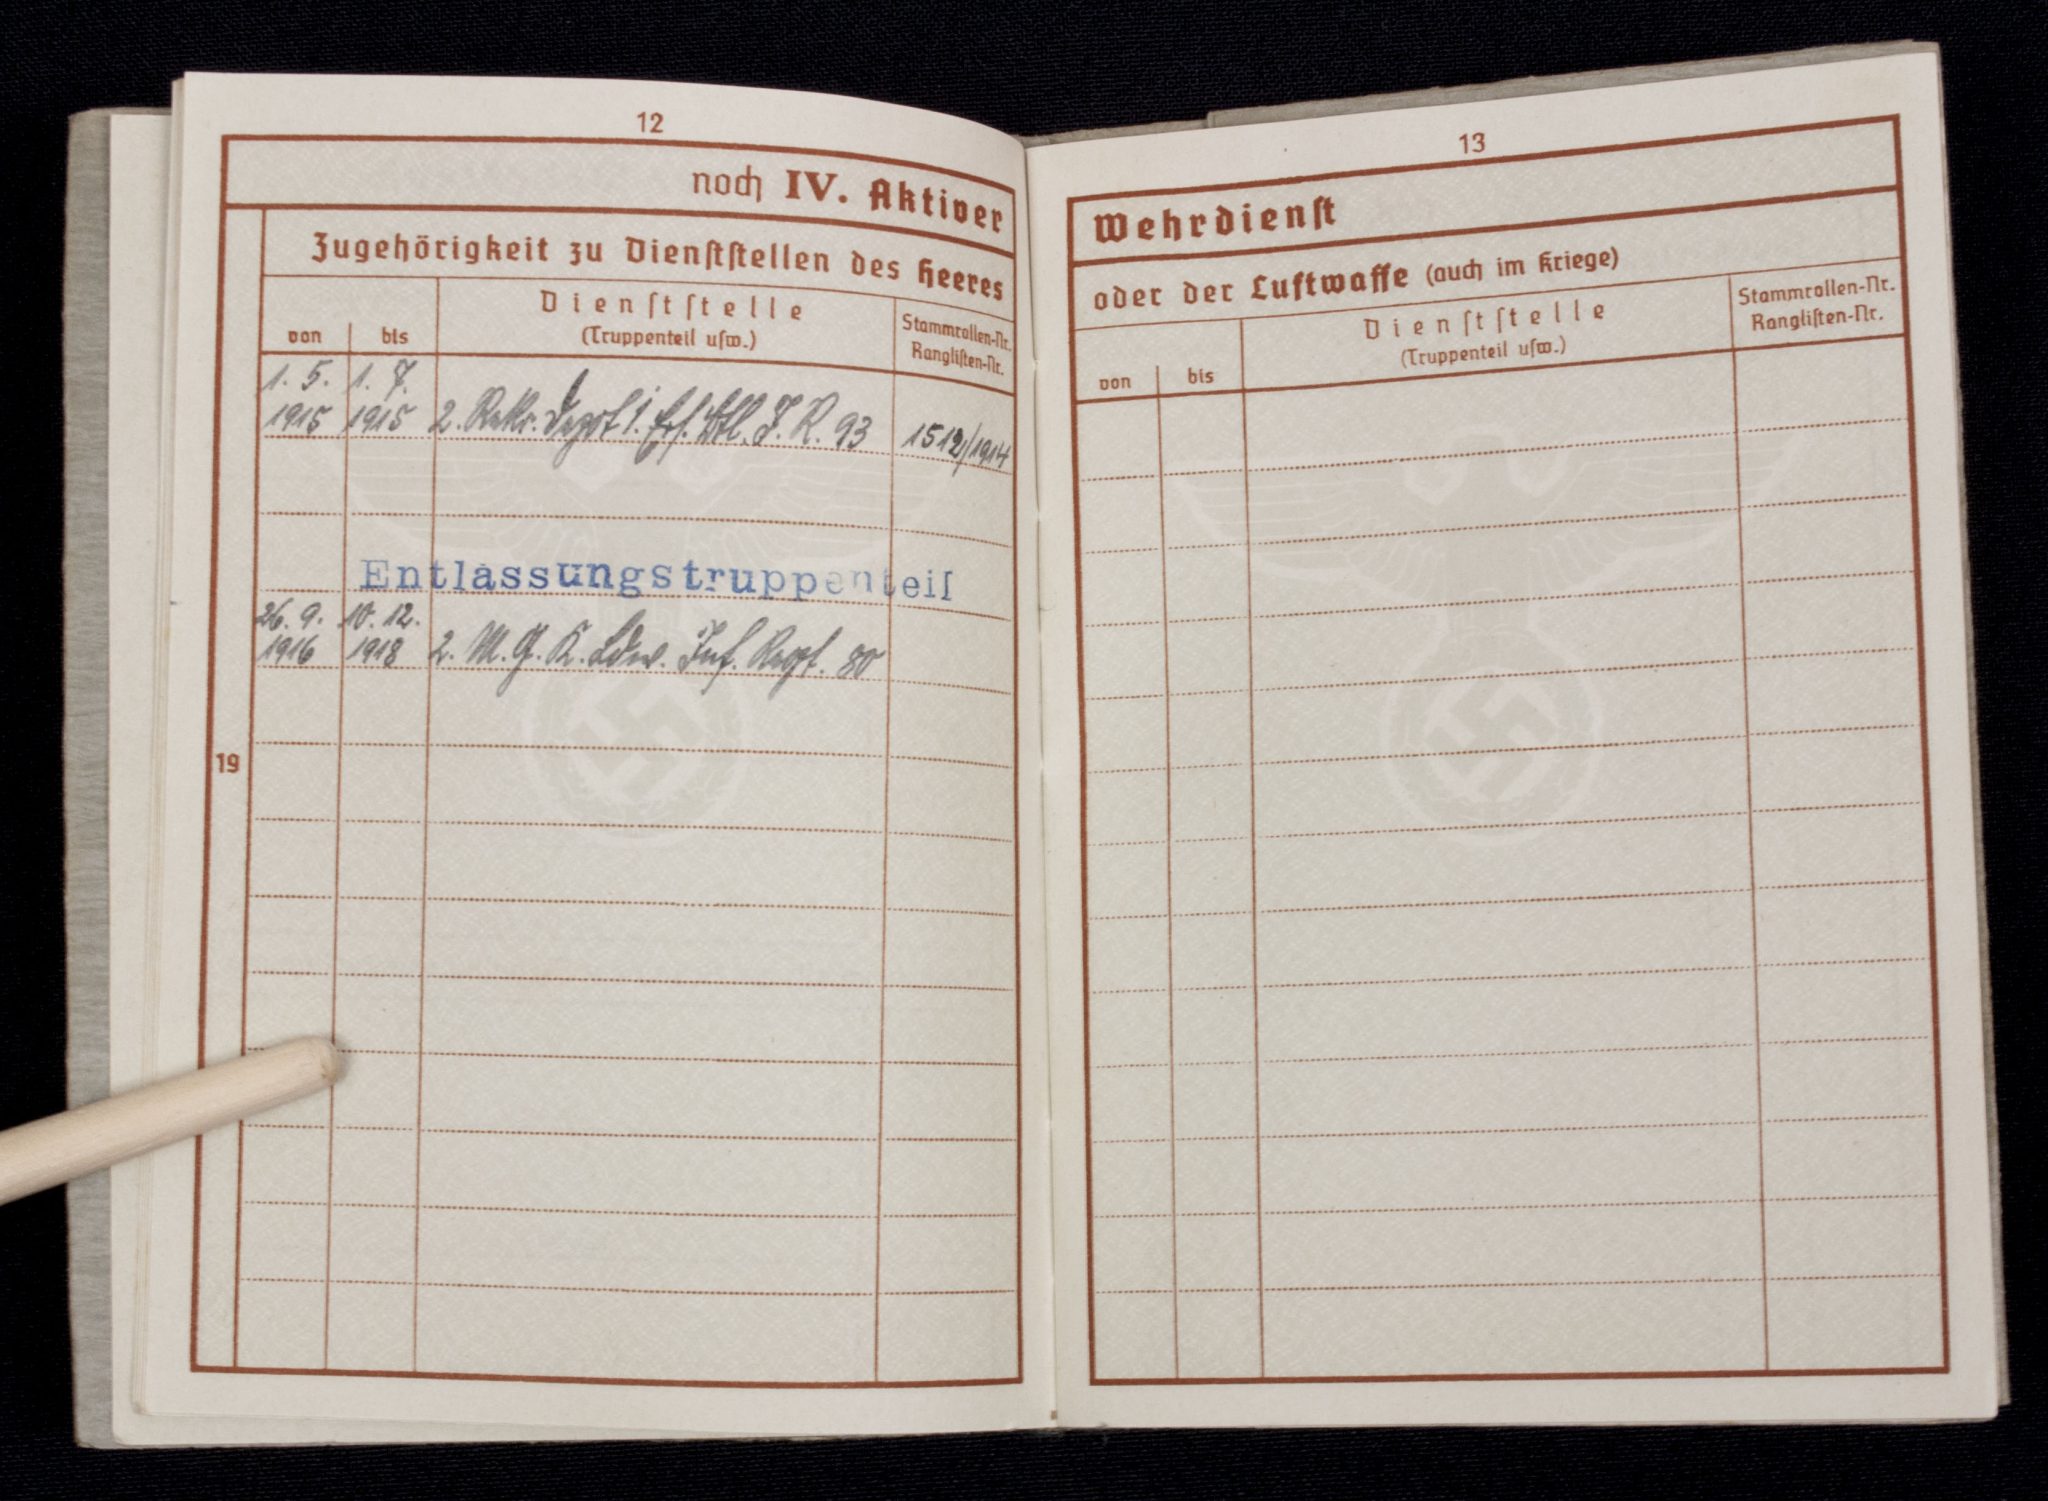 12
noch IV. Aktiver
Zugehörigkeit zu Dienststellen des Heeres
von
bis
Dienststelle
(Truppenteil usw.)
Stammrollen-Nr.
Ranglisten-Nr.
1. 5.
1915
1. 7.
1915
2. Rekr. Depot I. Ers. Btl. I. R. 93
1512/1914
Entlassungstruppenteil
26. 9.
1916
10. 12.
1918
2. M. G. K. Ldw. Inf. Regt. 80
19
13
Wehrdienst
oder der Luftwaffe (auch im Kriege)
von
bis
Dienststelle
(Truppenteil usw.)
Stammrollen-Nr.
Ranglisten-Nr.